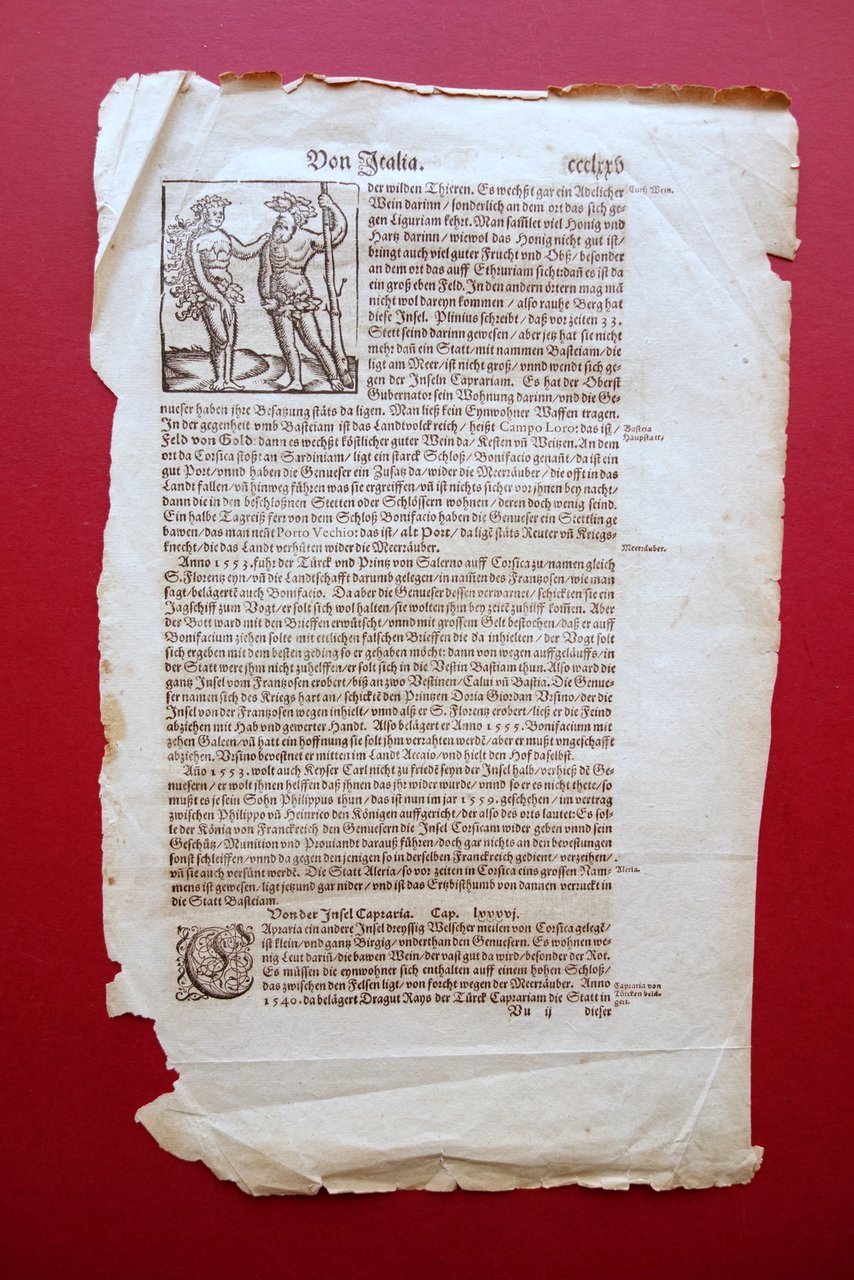 Von Italia. ccclxxv
der wilden Thieren. Es wechßt gar ein Adelicher
Wein darinn / sonderlich an dem ort das sich ge-
gen Liguriam kehrt. Man sam̃let viel Honig vnd
Hartz darinn / wiewol das Honig nicht gut ist /
bringt auch viel guter Frucht vnd Obß / besonder
an dem ort das auff Ethruriam sicht: dañ es ist da
ein groß eben Feld. In den andern örtern mag mã
nicht wol dareyn kommen / also rauhe Berg hat
diese Insel. Plinius schreibt / daß vor zeiten 33.
Stett seind darinn gewesen / aber jetz hat sie nicht
mehr dañ ein Statt / mit nammen Basteiam / die
ligt am Meer / ist nicht groß / vnnd wendt sich ge-
gen der Inseln Caprariam. Es hat der Oberst
Gubernator sein Wohnung darinn / vnd die Ge-
nueser haben jhre Besatzung stäts da ligen. Man ließ kein Eynwohner Waffen tragen.
In der gegenheit vmb Basteiam ist das Landtvolck reich / heißt Campo Loro: das ist /
Feld von Gold: dann es wechßt köstlicher guter Wein da / Kesten vñ Weitzen. An dem
ort da Corsica stoßt an Sardiniam / ligt ein starck Schloß / Bonifacio genañt / da ist ein
gut Port / vnnd haben die Genueser ein Zusatz da / wider die Meerräuber / die offt in das
Landt fallen / vñ hinweg führen was sie ergreiffen / vñ ist nichts sicher vor jhnen bey nacht /
dann die in den beschloßnen Stetten oder Schlössern wohnen / deren doch wenig seind.
Ein halbe Tagreiß ferr von dem Schloß Bonifacio haben die Genueser ein Stettlin ge
bawen / das man neñt Porto Vechio: das ist / alt Port / da ligẽ stäts Reuter vñ Kriegs-
knecht / die das Landt verhüten wider die Meerräuber.
Anno 1553. fuhr der Türck vnd Printz von Salerno auff Corsica zu / namen gleich
S. Florentz eyn / vñ die Landtschafft darumb gelegen / in nam̃en des Frantzosen / wie man
sagt / belägertẽ auch Bonifacio. Da aber die Genueser dessen verwarnet / schickten sie ein
Jagschiff zum Vogt / er solt sich wol halten / sie wolten jhm bey zeitẽ zu hilff kom̃en. Aber
der Bott ward mit den Brieffen erwütscht / vnnd mit grossem Gelt bestochen / daß er auff
Bonifacium ziehen solte mit ettlichen falschen Brieffen die da inhielten / der Vogt solt
sich ergeben mit dem besten geding so er gehaben möcht: dann von wegen auffgeläuffs / in
der Statt were jhm nicht zuhelffen / er solt sich in die Vestin Bastiam thun. Also ward die
gantz Insel vom Frantzosen erobert / biß an zwo Vestinen / Calui vñ Bastia. Die Genue-
ser namen sich des Kriegs hart an / schicktẽ den Printzen Doria Giordan Vrsino / der die
Insel von der Frantzosen wegen inhielt / vnnd alß er S. Florentz erobert / ließ er die Feind
abziehen mit Hab vnd gewerter Handt. Also belägert er Anno 1555. Bonifacium mit
zehen Galeen / vñ hatt ein hoffnung sie solt jhm verrahten werdẽ / aber er mußt vngeschafft
abziehen. Vrsino bevestnet er mitten im Landt Accaio / vnd hielt den Hof daselbst.
Año 1553. wolt auch Keyser Carl nicht zu friedẽ seyn der Insel halb / verhieß dẽ Ge-
nuesern / er wolt jhnen helffen daß jhnen das jhr wider wurde / vnnd so er es nicht thete / so
mußt es je sein Sohn Philippus thun / das ist nun im jar 1559. geschehen / im vertrag
zwischen Philippo vñ Heinrico den Königen auffgericht / der also des orts lautet: Es sol-
le der König von Franckreich den Genuesern die Insel Corsicam wider geben vnnd sein
Geschütz / Munition vnd Proviandt darauß führen / doch gar nichts an den bevestungen
sonst schleiffen / vnnd da gegen den jenigen so in derselben Franckreich gedient / verzeihen /
vñ sie auch versünt werdẽ. Die Statt Aleria / so vor zeiten in Corsica eins grossen Nam-
mens ist gewesen / ligt jetzund gar nider / vnd ist das Ertzbisthumb von dannen verruckt in
die Statt Basteiam.
Von der Insel Capraria. Cap. lxxxvj.
CApraria ein andere Insel dreyssig Welscher meilen von Corsica gelegẽ /
ist klein / vnd gantz Birgig / vnder than den Genuesern. Es wohnen we-
nig Leut dariñ / die bawen Wein / der vast gut da wird / besonder der Rot.
Es müssen die eynwohner sich enthalten auff einem hohen Schloß /
das zwischen den Felsen ligt / von forcht wegen der Meerräuber. Anno
1540. da belägert Dragut Rays der Türck Caprariam die Statt in
Vu ij dieser
Curß Wein.
Basteia
Hauptstatt.
Meerräuber.
Aleria.
Capraria von
Türcken belä-
gert.